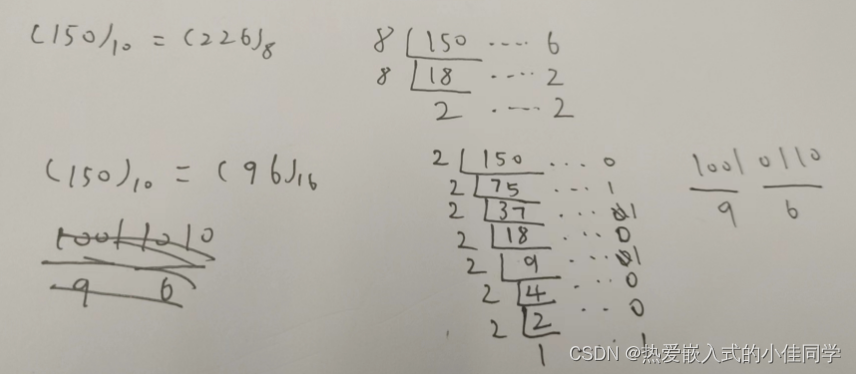 (150)₁₀ = (226)₈
8 150 ···· 6
8 18 ···· 2
2 ···· 2
(150)₁₀ = (96)₁₆
10011010
9 6
2 150 ··· 0
2 75 ··· 1
2 37 ··· 1
2 18 ··· 0
2 9 ··· 1
2 4 ·· 0
2 2 ·· 0
1 ·· 1
1001 0110
9 6
CSDN @热爱嵌入式的小佳同学